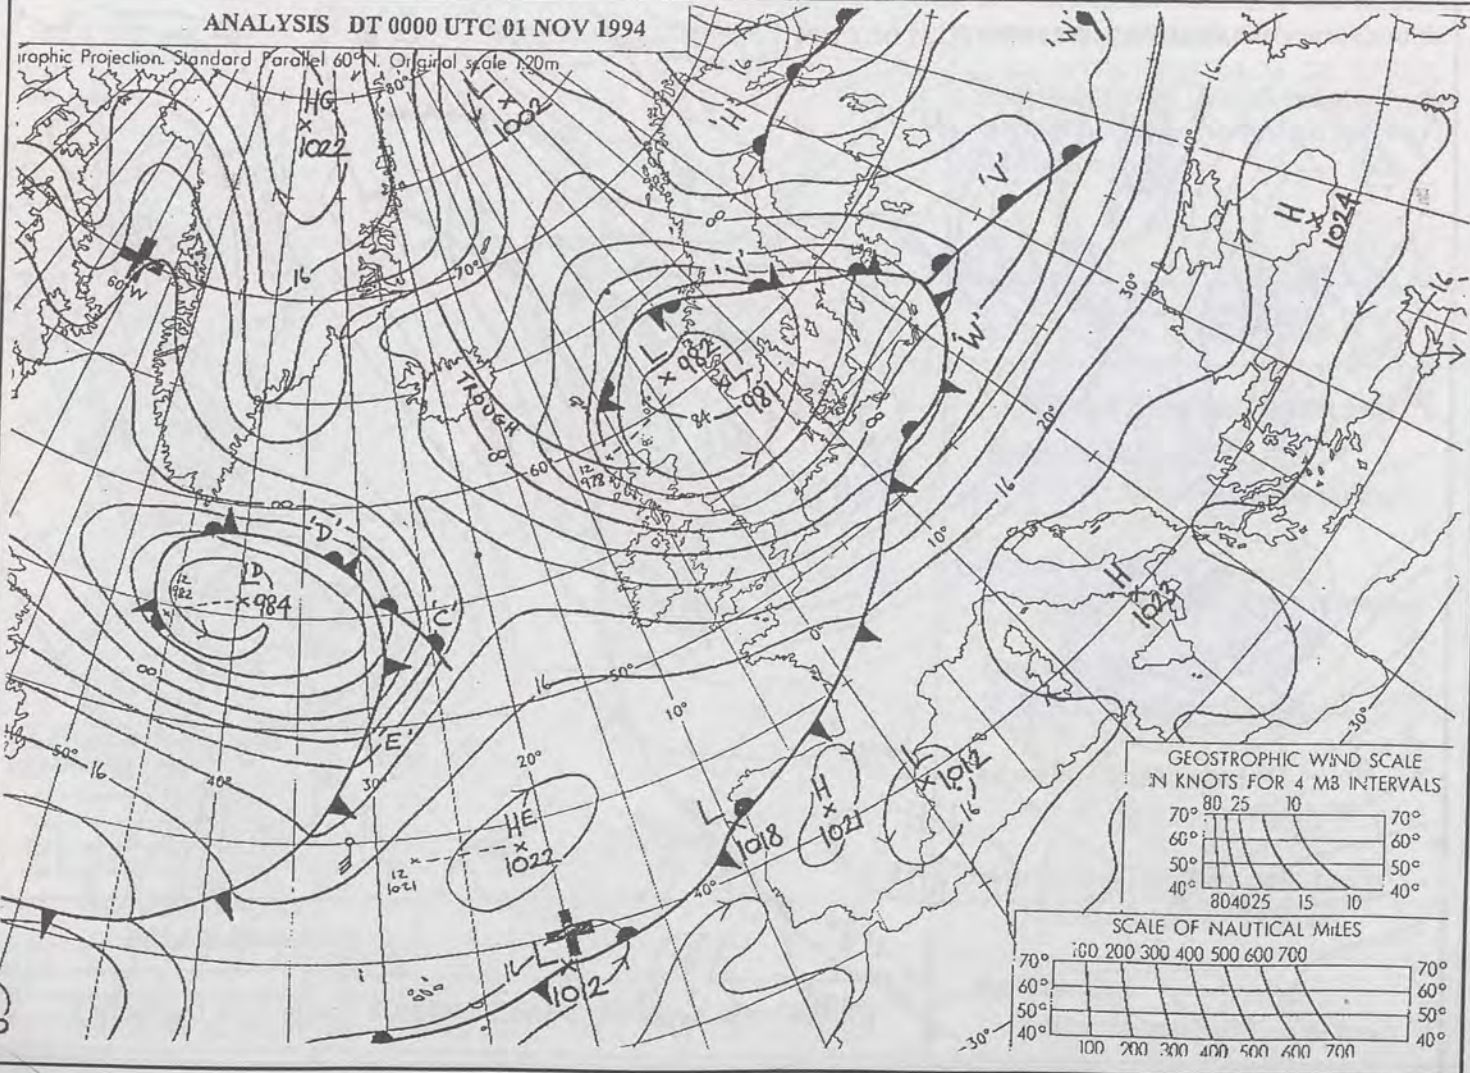 ANALYSIS DT 0000 UTC 01 NOV 1994
rophic Projection. Standard Parallel 60°N. Original scale 1:20m
80°
HG
1022
L
1002
16
'H'
'W'
16
40°
'V'
8
H
1024
60°W
16
70°
'V'
30°
16
L
982
L
981
84
'W'
TROUGH
8
8
8
20°
12
978
60
16
10°
8
'D'
LD
984
12
982
'C'
H
1023
0°
50°
16
10°
8
'E'
50°
16
40°
30°
20°
30°
HE
1022
12
1021
L
1018
H
1021
L
1012
16
40°
16
L
1012
30°
GEOSTROPHIC WIND SCALE
IN KNOTS FOR 4 MB INTERVALS
80 25 10
70° 70°
60° 60°
50° 50°
40° 40°
80 40 25 15 10
SCALE OF NAUTICAL MILES
100 200 300 400 500 600 700
70° 70°
60° 60°
50° 50°
40° 40°
100 200 300 400 500 600 700